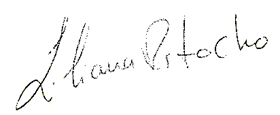 Liliana Pstocho